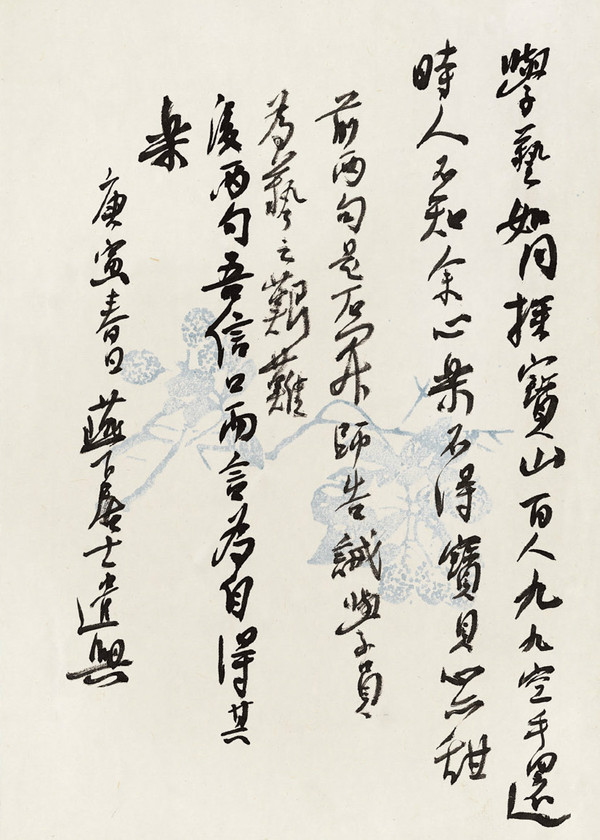 學藝如同寶山百人九九空手還
時人不知余心樂不得寶貝心亦甜
前兩句是石開師告誡學員
為藝之艱難
後兩句吾信口而言為自得其
樂
庚寅春日燕下居士遣興